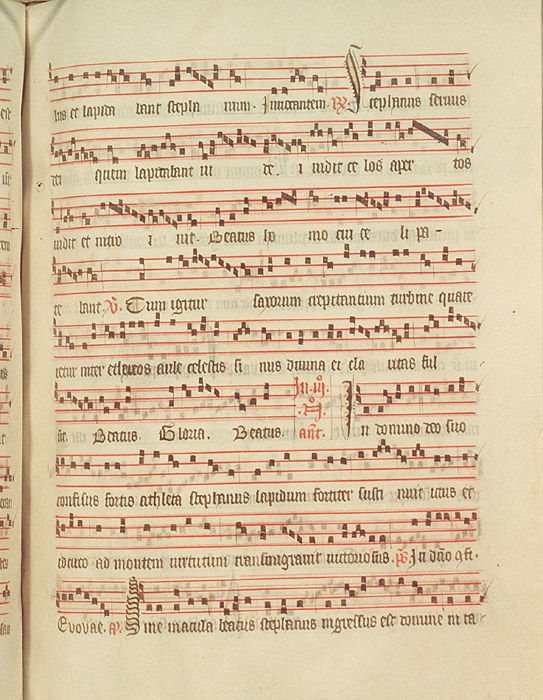 tus et lapida bant stepha num. Invocantem. R. Stephanus servus
dei quem lapidabant iu de i vidit ce los aper tos
vidit et intro i vit Beatus ho mo cui ce li pa-
te bant. V. Cum igitur saxorum crepitantium turbine quate
retur inter ethereos aule celestis si nus divina ei cla ritas ful
sit. Beatus. Gloria. Beatus. In iii. N. ant. In domino deo suo
confisus fortis athleta stephanus lapidum fortiter susti nuit ictus et
ideirco ad montem virtutum transmigravit victoriosus. ps. In dno 9fi.
Evovae. a. Sine macula beatus stephanus ingressus est domine in ta